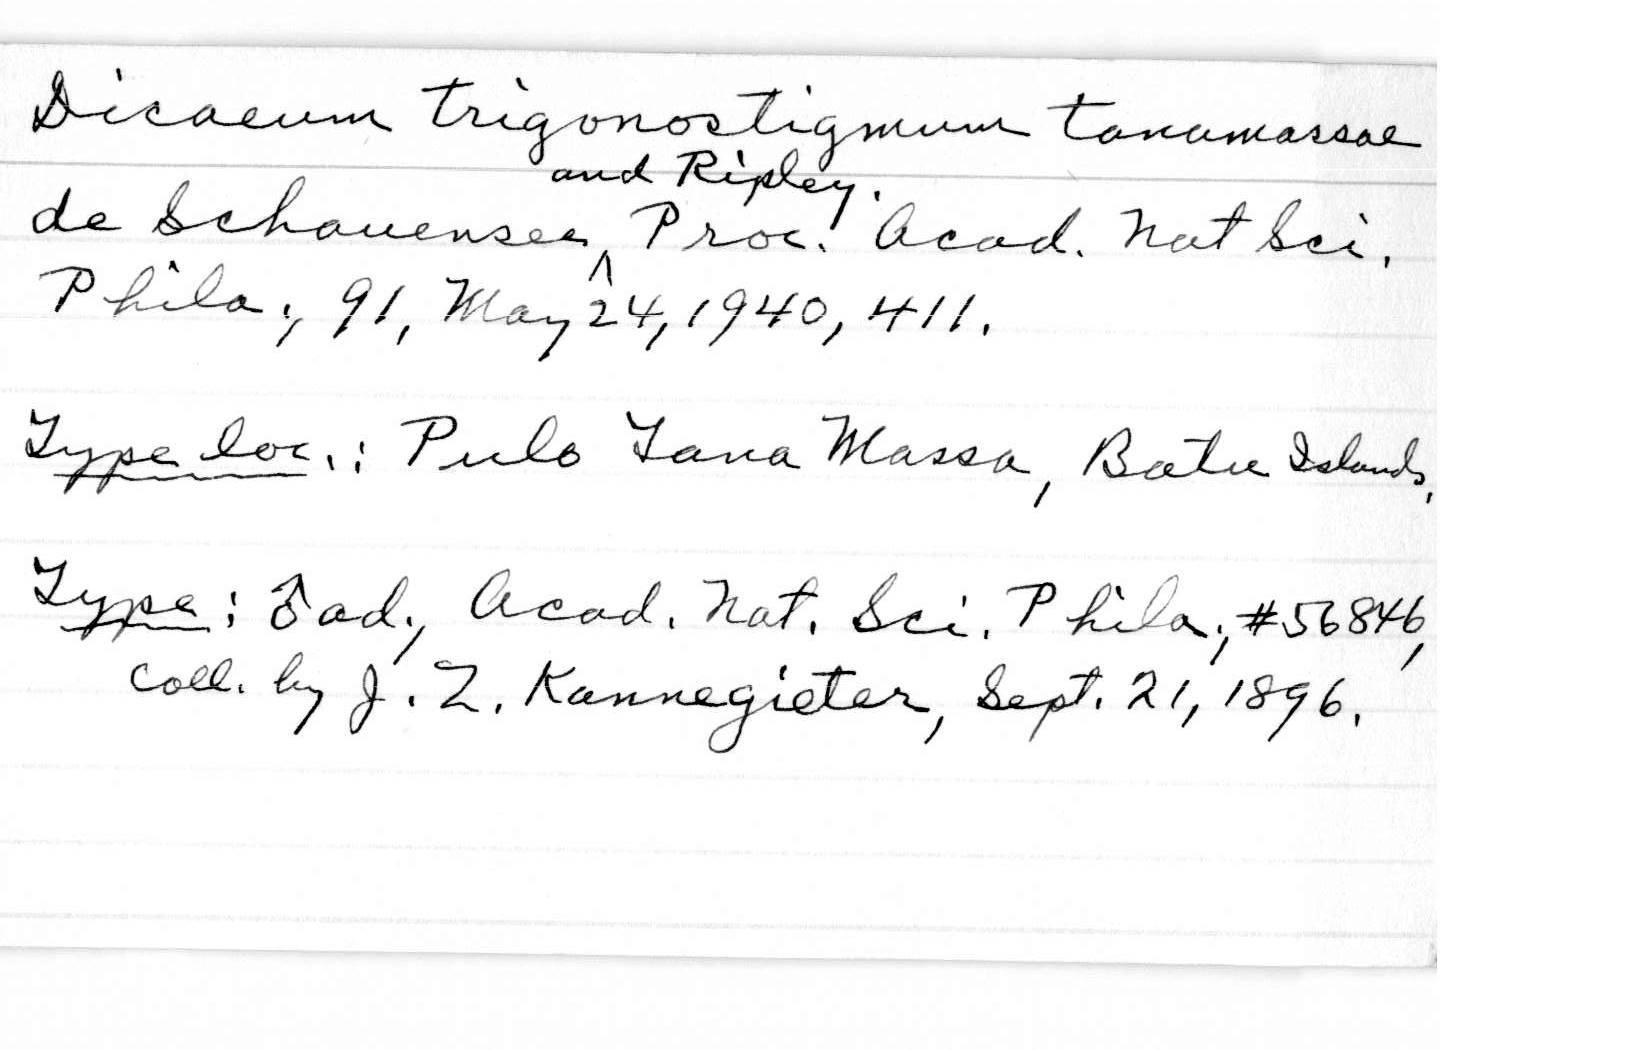 Dicaeum trigonostigmum tanamassae
and Ripley.
de Schauensee ^ Proc. Acad. Nat Sci.
Phila., 91, May 24, 1940, 411.
Type loc.: Pulo Tana Massa, Batu Islands,
Type: ♂ ad., Acad. Nat. Sci. Phila., #56846,
coll. by J. Z. Kannegieter, Sept. 21, 1896.